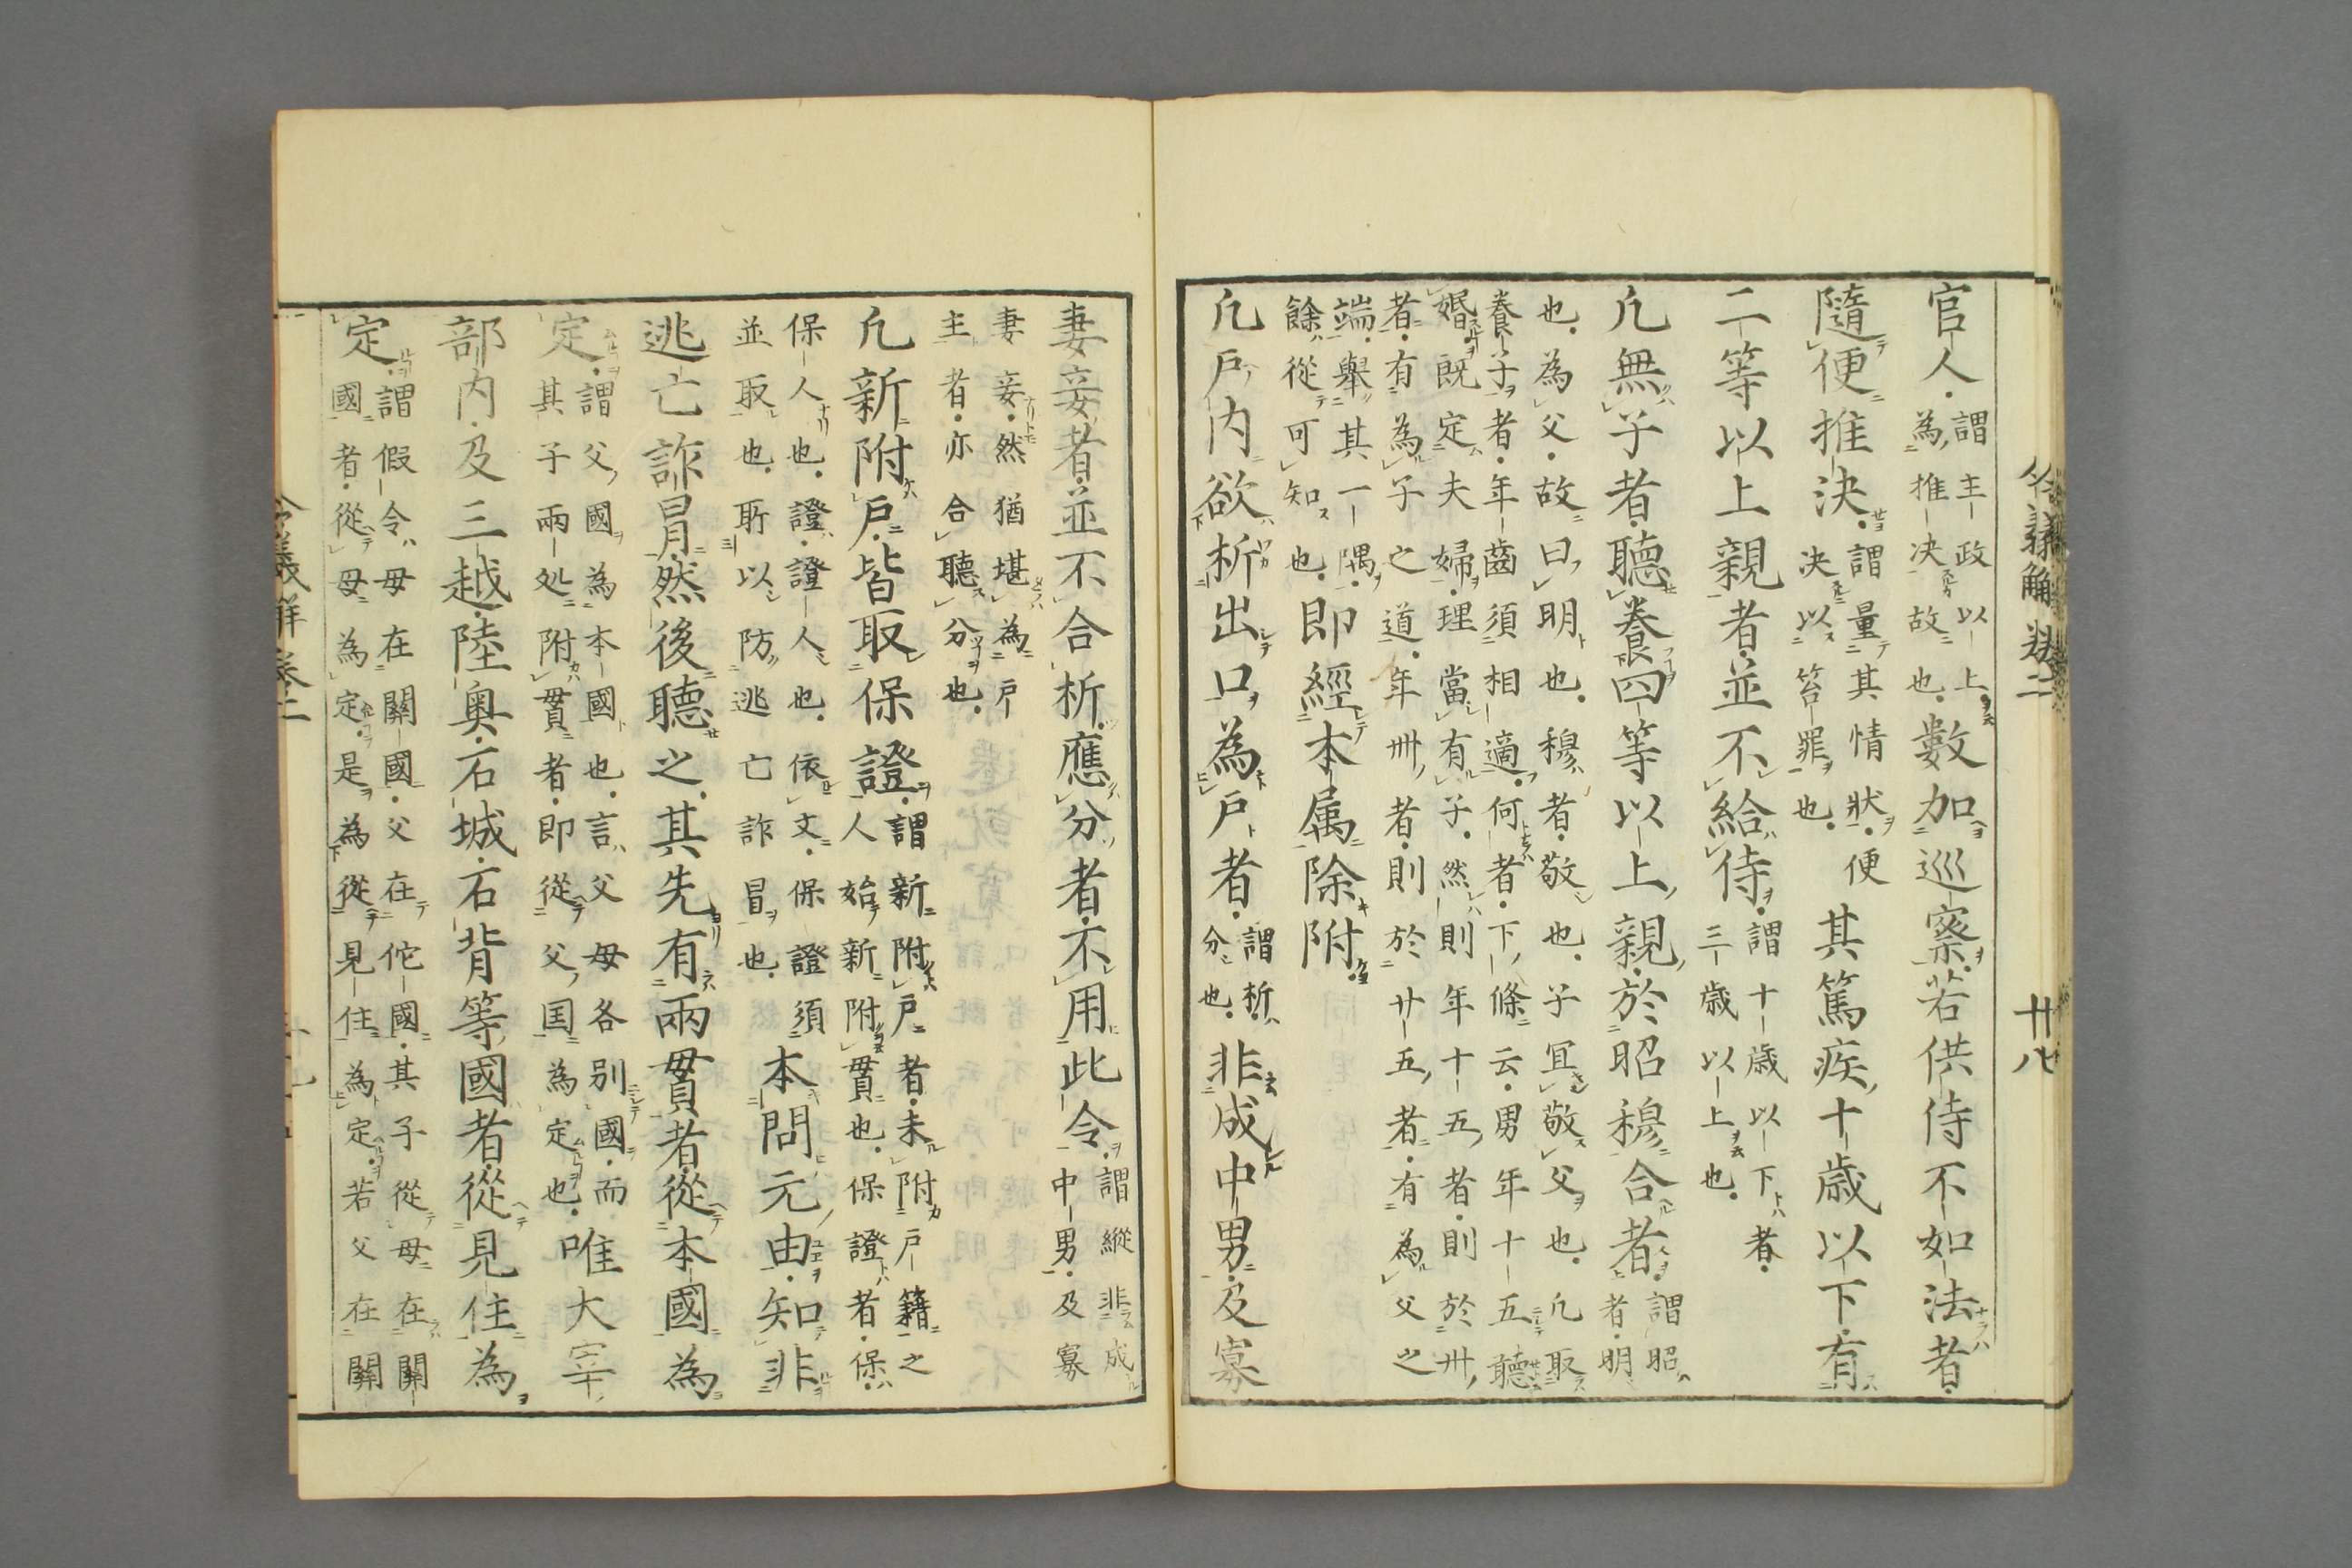 令義解巻二 卅八
官人。謂主政以上。
為推決故也。數加巡察。若供侍不如法者。
隨便推決。謂量其情狀。便
決以笞罪也。其篤疾十歳以下。有
二等以上親者。並不給侍。謂十歳以下者。
三歳以上也。
凢無子者。聽養四等以上親。於昭穆合者。謂昭
者。明
也。為父。故曰明也。穆者。敬也。子冝敬父也。凢取
養子者。年齒須相適。何者。下條云。男年十五聽
婚。既定夫婦。理當有子。然則年十五者。則於卅
者。有為子之道。年卅者。則於廿五者。有為父之
端。舉其一隅。
餘從可知也。即經本属除附。
凢戸内欲析出口為戸者。謂析。
分也。非成中男。及寡
妻妾者。並不合析。應分者。不用此令。謂縱非成
中男。及寡
妻妾。然猶堪為戸
主者。亦合聽分也。
凢新附戸。皆取保證。謂新附戸者。未附戸籍之
人始新附貫也。保證者。保。
保人也。證。證人也。依文。保證須
並取也。所以防逃亡詐冒也。本問元由。知非
逃亡詐冒。然後聽之。其先有兩貫者。從本國為
定。謂父國為本國也。言父母各別國。而
其子兩処附貫者。即從父国為定也。唯大宰
部内。及三越。陸奥。石城。石背等國者。從見住為
定。謂假令母在關國。父在佗國。其子從母在關
國者。從母為定。是為從見住為定。若父在關
令義解巻二